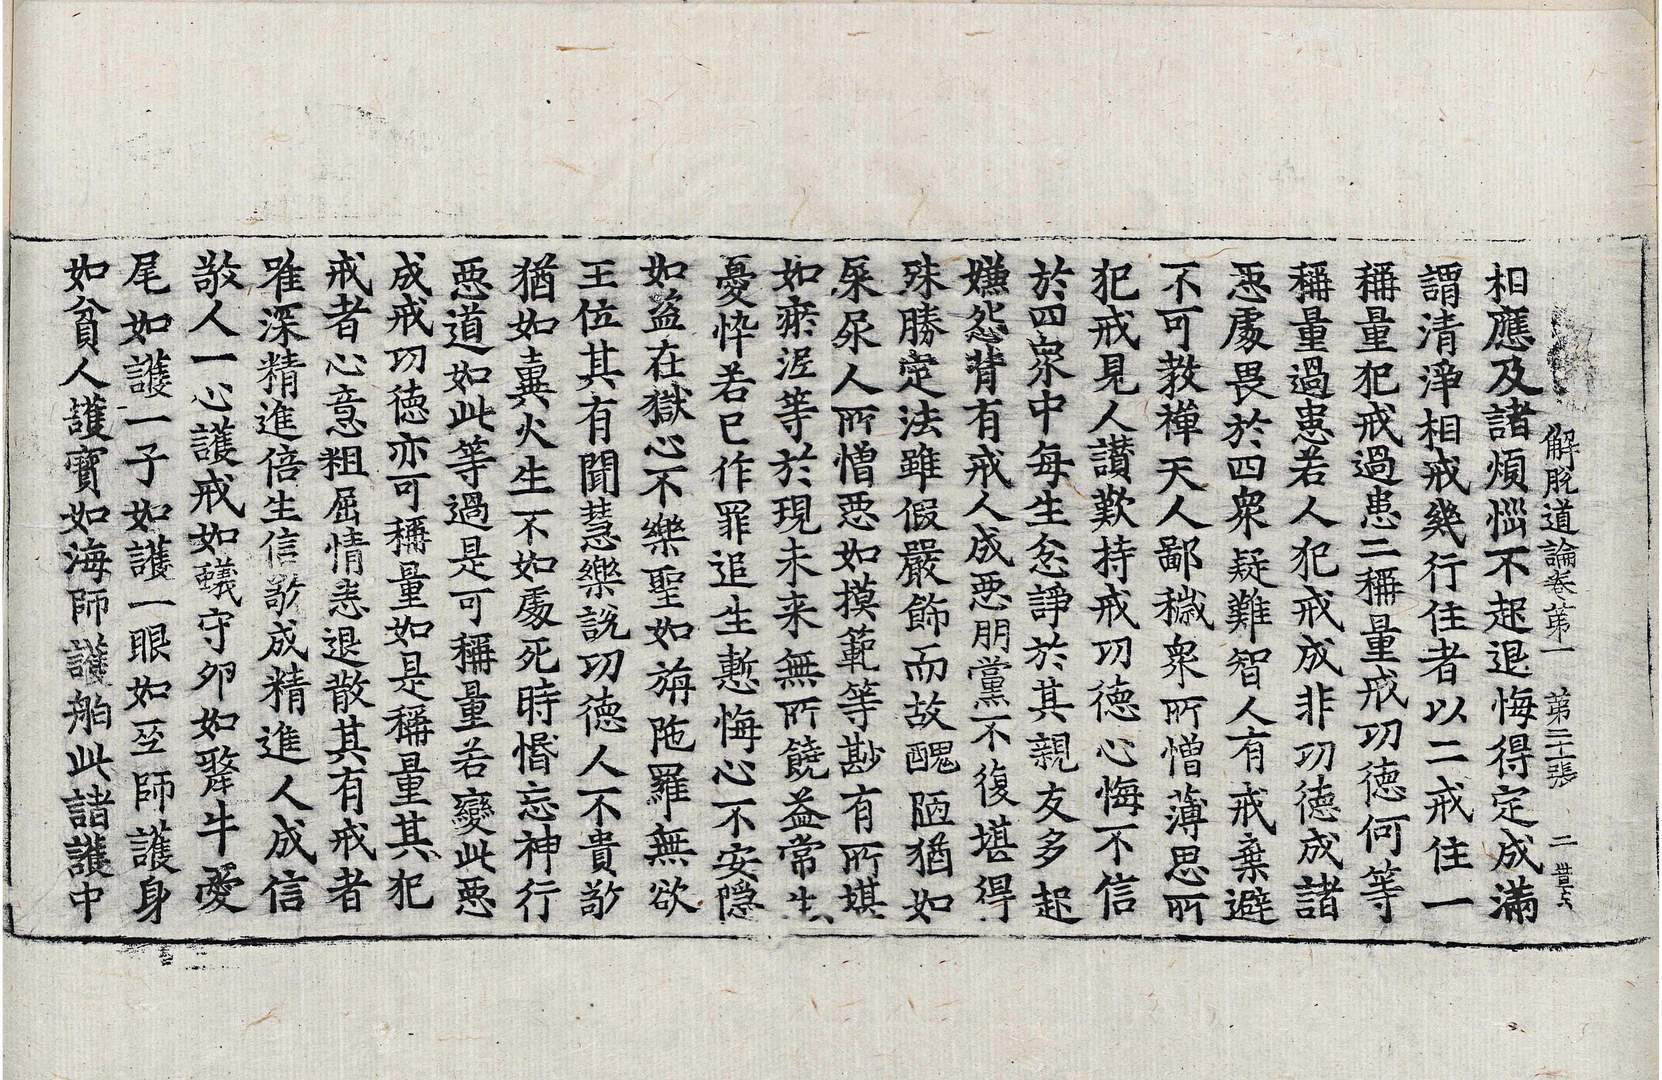 解脫道論卷第一　第二十一張　二
相應及諸煩惱不起退悔得定成滿
謂清淨相戒幾行住者以二戒住一
稱量犯戒過患二稱量戒功德何等
稱量過患若人犯戒成非功德成諸
惡處畏於四衆疑難智人有戒棄避
不可教禪天人鄙穢衆所憎薄思所
犯戒見人讚歎持戒功德心悔不信
於四衆中每生忿諍於其親友多起
嫌怨背有戒人成惡朋黨不復堪得
殊勝定法雖假嚴飾而故醜陋猶如
屎尿人所憎惡如摸範等尠有所堪
如淤泥等於現未来無所饒益常生
憂悴若已作罪追生慙悔心不安隱
如盗在獄心不樂聖如旃陁羅無欲
王位其有聞慧樂說功德人不貴敬
猶如糞火生不如處死時惛忘神行
惡道如此等過是可稱量若變此惡
成戒功德亦可稱量如是稱量其犯
戒者心意粗屈情恚退散其有戒者
唯深精進倍生信敬成精進人成信
敬人一心護戒如蟻守卵如犛牛愛
尾如護一子如護一眼如巫師護身
如貧人護寶如海師護舶此諸護中